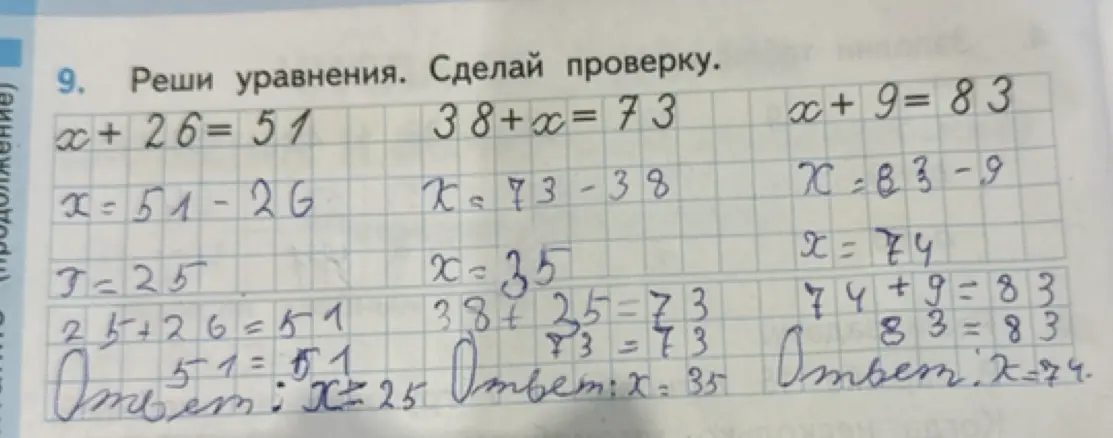 (продолжение)
9. Реши уравнения. Сделай проверку.
x + 26 = 51 38 + x = 73 x + 9 = 83
x = 51 - 26 x = 73 - 38 x = 83 - 9
x = 25 x = 35 x = 74
25 + 26 = 51 38 + 25 = 73 74 + 9 = 83
51 = 51 73 = 73 83 = 83
Ответ: x = 25 Ответ: x = 35 Ответ: x = 74.